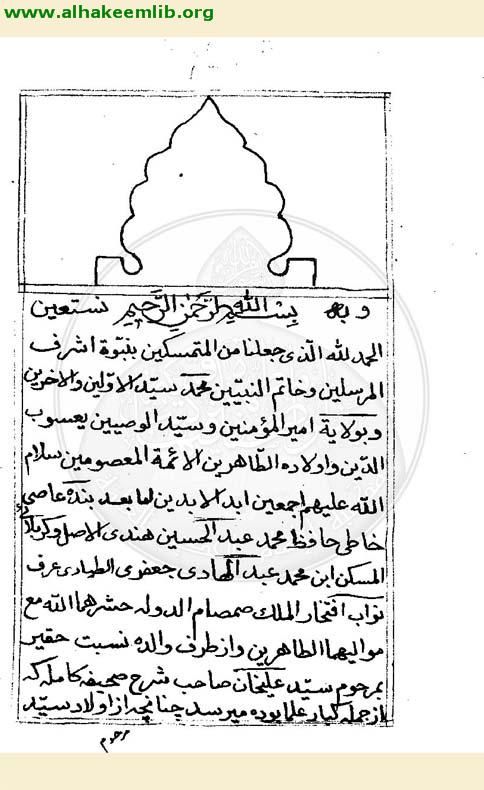 www.alhakeemlib.org
وبه بسم الله الرحمن الرحيم نستعين
الحمد لله الذى جعلنا من المتمسكين بنبوة اشرف
المرسلين وخاتم النبيين محمد سيد الاولين والاخرين
وبولاية امير المؤمنين وسيد الوصيين يعسوب
الدين واولاده الطاهرين الائمة المعصومين سلام
الله عليهم اجمعين ابد الابدين اما بعد بنده عاصى
خاطى حافظ محمد عبد الحسين هندى الاصل وكربلائى
المسكن ابن محمد عبد الهادى جعفرى الطيارى عرف
نواب افتخار الملك صمصام الدوله حشرهما الله مع
مواليهما الطاهرين واز طرف والده نسبت حقير
بمرحوم سيد عليخان صاحب شرح صحيفه كامله كه
از جمله كبار علما بوده ميرسد چنانچه از اولاد سيد
مرحوم